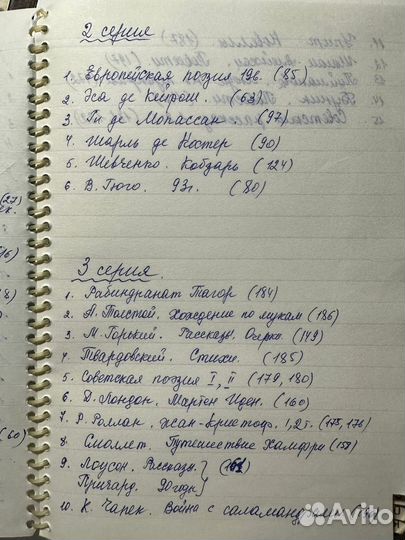 2 серия
1. Европейская поэзия 19в. (85)
2. Эса де Кейрош. (63)
3. Ги де Мопассан (97)
4. Шарль де Костер (90)
5. Шевченко. Кобзарь (124)
6. В. Гюго. 93г. (80)
3 серия.
1. Рабиндранат Тагор (184)
2. А. Толстой. Хождение по мукам (186)
3. М. Горький. Рассказы. Очерки. (149)
4. Твардовский. Стихи. (185)
5. Советская поэзия I, II (179, 180)
6. Д. Лондон. Мартен Иден. (160)
7. Р. Роллан. Жан-Кристоф. 1,2т. (175, 176)
8. Смоллет. Путешествие Хамфри (157)
9. Лоусон. Рассказы.
Причард. 90годы
10. К. Чапек. Война с саламандрами
(27)
ек.
16)
8)
(60)
Avito